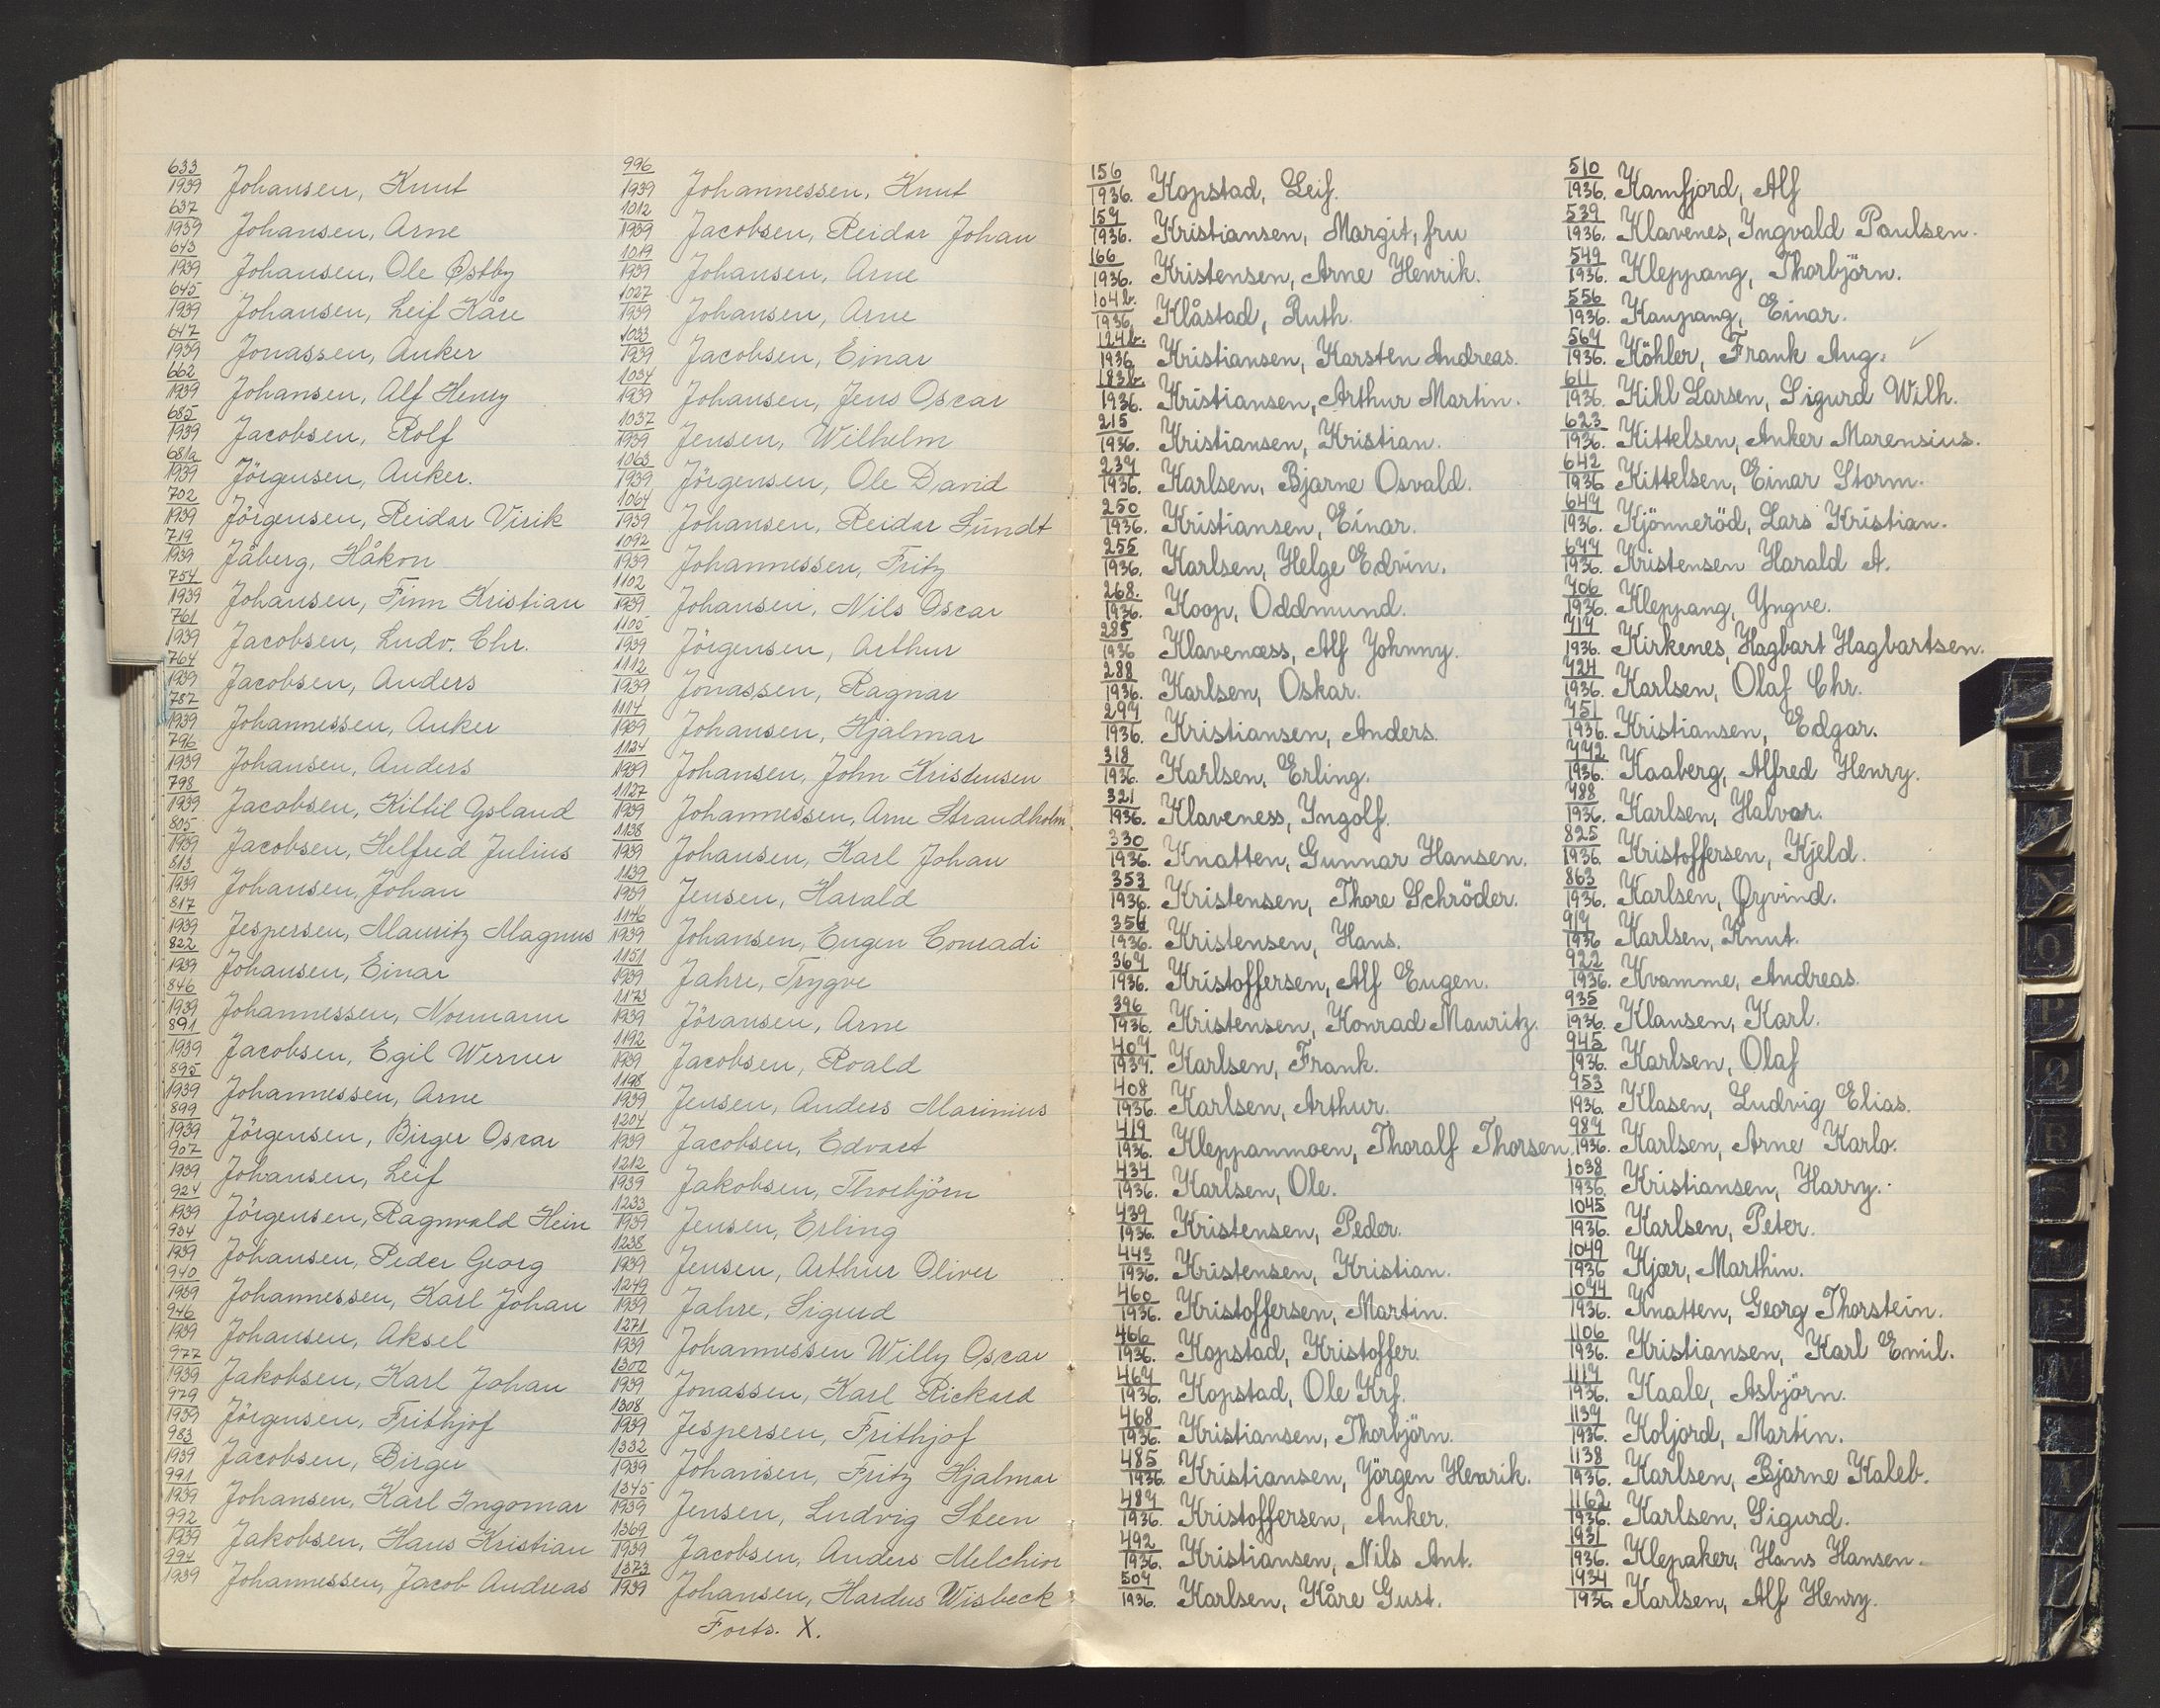 633/1939 Johansen, Knut
637/1939 Johansen, Arne
643/1939 Johansen, Ole Østby
645/1939 Johansen, Leif Kåre
647/1939 Jonassen, Anker
662/1939 Johansen, Alf Henry
685/1939 Jacobsen, Rolf
681a/1939 Jörgensen, Anker.
702/1939 Jörgensen, Reidar Virik
719/1939 Jåberg, Håkon
754/1939 Johansen, Finn Kristian
761/1939 Jacobsen, Ludv. Chr.
764/1939 Jacobsen, Anders
787/1939 Johannessen, Anker
796/1939 Johansen, Anders
798/1939 Jacobsen, Kittil Gsland
805/1939 Jacobsen, Helfred Julius
813/1939 Johansen, Johan
817/1939 Jespersen, Mauritz Magnus
822/1939 Johansen, Einar
846/1939 Johannessen, Normann
891/1939 Jacobsen, Egil Werner
895/1939 Johannessen, Arne
899/1939 Jörgensen, Birger Oscar
907/1939 Johansen, Leif
924/1939 Jörgensen, Ragnvald Hein
934/1939 Johansen, Peder Georg
940/1939 Johannessen, Karl Johan
946/1939 Johansen, Aksel
977/1939 Jakobsen, Karl Johan
979/1939 Jörgensen, Frithjof
983/1939 Jacobsen, Birger
991/1939 Johansen, Karl Ingomar
992/1939 Jakobsen, Hans Kristian
994/1939 Johannessen, Jacob Andreas
996/1939 Johannessen, Knut
1012/1939 Jacobsen, Reidar Johan
1019/1939 Johansen, Arne
1027/1939 Johansen, Arne
1033/1939 Jacobsen, Einar
1034/1939 Johansen, Jens Oscar
1037/1939 Jensen, Wilhelm
1063/1939 Jörgensen, Ole David
1064/1939 Johansen, Reidar Sundt
1092/1939 Johannessen, Fritz
1102/1939 Johansen, Nils Oscar
1105/1939 Jörgensen, Arthur
1112/1939 Jonassen, Ragnar
1114/1939 Johansen, Hjalmar
1124/1939 Johansen, John Kristensen
1127/1939 Johannessen, Arne Strandholm
1138/1939 Johansen, Karl Johan
1139/1939 Jensen, Harald
1146/1939 Johansen, Eugen Conradi
1151/1939 Jahre, Trygve
1173/1939 Jöransen, Arne
1192/1939 Jacobsen, Roald
1198/1939 Jensen, Anders Marinius
1204/1939 Jacobsen, Edvart
1212/1939 Jakobsen, Thorbjörn
1233/1939 Jensen, Erling
1238/1939 Jensen, Arthur Oliver
1249/1939 Jahre, Sigurd
1271/1939 Johannessen Willy Oscar
1300/1939 Jonassen, Karl Rickard
1308/1939 Jespersen, Frithjof
1332/1939 Johansen, Fritz Hjalmar
1345/1939 Jensen, Ludvig Steen
1369/1939 Jacobsen, Anders Melchior
1373/1939 Johansen, Hardus Wisbeck
Forts. X.
156/1936. Kopstad, Leif.
157/1936. Kristiansen, Margit, fru
166/1936. Kristensen, Arne Henrik.
104b./1936. Klåstad, Ruth.
124b./1936. Kristiansen, Karsten Andreas.
183b./1936. Kristiansen, Arthur Martin.
215/1936. Kristiansen, Kristian.
237/1936. Karlsen, Bjarne Osvald.
250/1936. Kristiansen, Einar.
255/1936. Karlsen, Helge Edvin.
268./1936. Koop, Oddmund.
285/1936 Klavenæss, Alf Johnny.
288/1936. Karlsen, Oskar.
297/1936. Kristiansen, Anders.
318/1936. Karlsen, Erling.
321/1936. Klaveness, Ingolf.
330/1936. Knatten, Gunnar Hansen.
353/1936. Kristensen, Thore Schröder.
356/1936. Kristensen, Hans.
367/1936. Kristoffersen, Alf Eugen.
396/1936. Kristensen, Konrad Mauritz.
407/1937. Karlsen, Frank.
408/1936. Karlsen, Arthur.
419/1936. Kleppanmoen, Thoralf Thorsen.
434/1936. Karlsen, Ole.
439/1936. Kristensen, Peder.
443/1936. Kristensen, Kristian.
460/1936. Kristoffersen, Martin.
466/1936. Kopstad, Kristoffer.
467/1936. Kopstad, Ole Krf.
468/1936. Kristiansen, Thorbjörn.
485/1936. Kristiansen, Jörgen Henrik.
487/1936. Kristoffersen, Anker.
492/1936. Kristiansen, Nils Ant.
507/1936. Karlsen, Kåre Gust.
510/1936. Kamfjord, Alf
539/1936. Klavenes, Ingvald Paulsen.
549/1936. Kleppang, Thorbjörn.
556/1936. Kaupang, Einar.
567/1936. Köhler, Frank Aug. ✓
611/1936. Kihl Larsen, Sigurd Wilh.
623/1936. Kittelsen, Anker Marensius.
642/1936 Kittelsen, Einar Storm.
647/1936. Kjönneröd, Lars Kristian.
677/1936. Kristensen Harald A.
706/1936. Kleppang, Yngve.
717/1936. Kirkenes, Hagbart Hagbartsen.
724/1936. Karlsen, Olaf Chr.
751/1936. Kristiansen, Edgar.
772/1936. Kaaberg, Alfred Henry.
788/1936. Karlsen, Halvor.
825/1936. Kristoffersen, Kjeld.
863/1936. Karlsen, Øyvind.
917/1936 Karlsen, Knut.
922/1936. Kvamme, Andreas.
935/1936. Klausen, Karl.
945/1936. Karlsen, Olaf
953/1936. Klasen, Ludvig Elias.
987/1936. Karlsen, Arne Karlo.
1038/1936. Kristiansen, Harry.
1045/1936. Karlsen, Peter.
1049/1936 Kjær, Marthin.
1074/1936. Knatten, Georg Thorstein.
1106/1936. Kristiansen, Karl Emil.
1117/1936. Kaale, Asbjörn.
1137/1936. Koljord, Martin.
1138/1936. Karlsen, Bjarne Kaleb.
1162/1936. Karlsen, Sigurd.
1931/1936. Klepaker, Hans Hansen.
1934/1936. Karlsen, Alf Henry.
L
M
N
O
P
Q
R